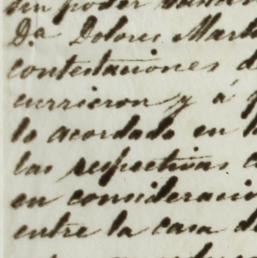 sin poder
Da Dolores Mart
contestaciones d
currieron y á q
lo acordado en l
las respectivas c
en consideracio
entre la casa de